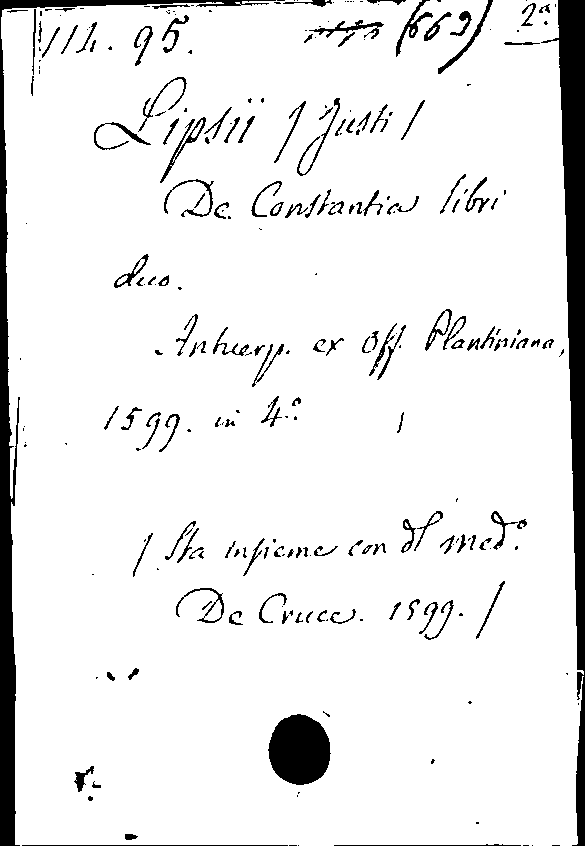 114. 95. (669) 2ª
Lipsii / Justi /
De Constantia libri
duo.
Antuerp. ex Off. Plantiniana,
1599. in 4.º
/ Sta insieme con dl med.º
De Cruce. 1599. /